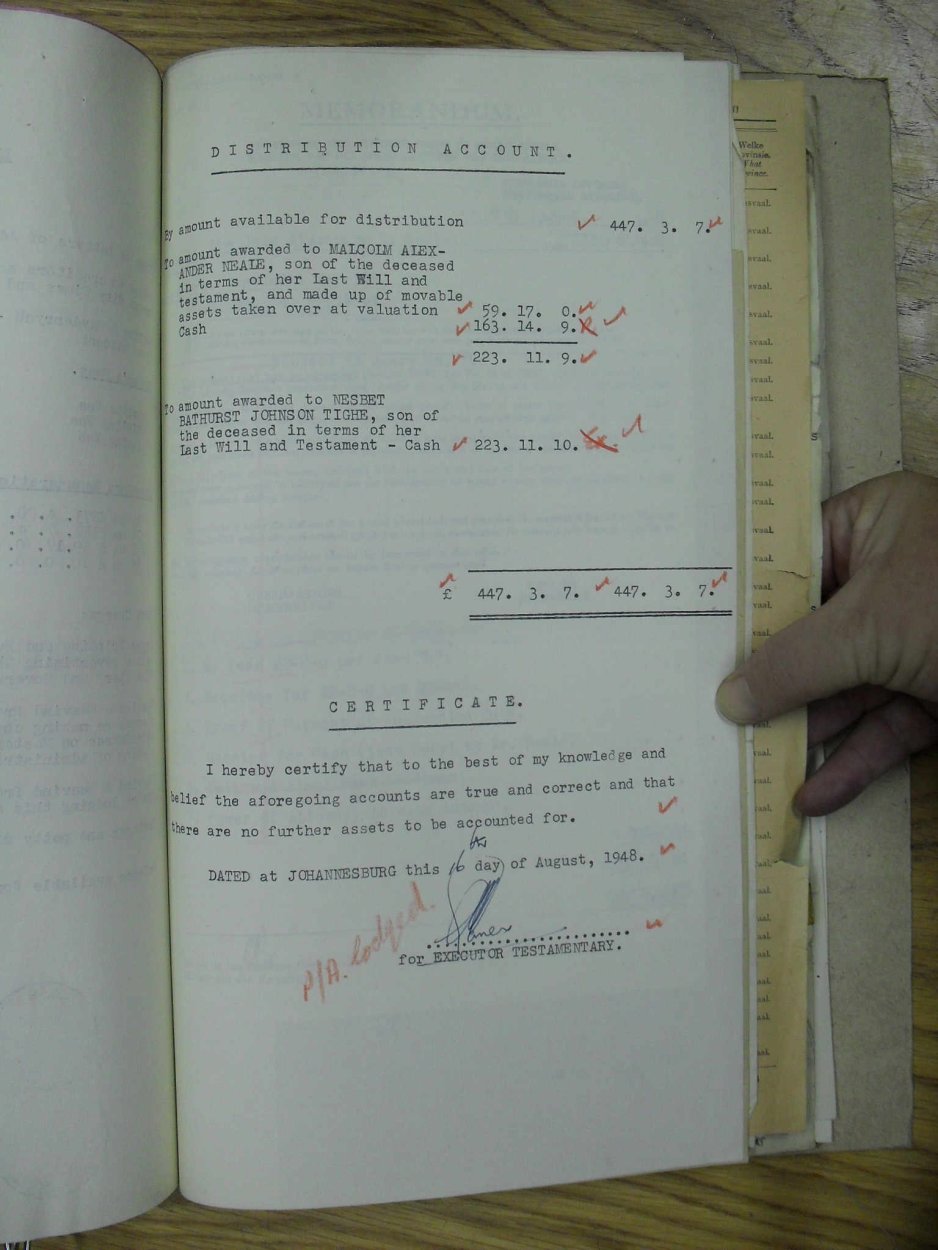 DISTRIBUTION ACCOUNT.
By amount available for distribution 447. 3. 7.
To amount awarded to MALCOLM ALEX-
ANDER NEALE, son of the deceased
in terms of her Last Will and
testament, and made up of movable
assets taken over at valuation 59. 17. 0.
Cash 163. 14. 9.
223. 11. 9.
To amount awarded to NESBET
BATHURST JOHNSON TIGHE, son of
the deceased in terms of her
Last Will and Testament - Cash 223. 11. 10.
£ 447. 3. 7. 447. 3. 7.
CERTIFICATE.
I hereby certify that to the best of my knowledge and
belief the aforegoing accounts are true and correct and that
there are no further assets to be accounted for.
DATED at JOHANNESBURG this 16 th day of August, 1948.
P/A. lodged.
for EXECUTOR TESTAMENTARY.
Welke
What